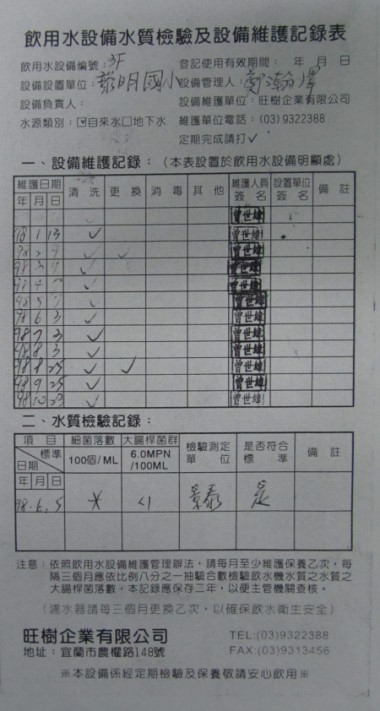 飲用水設備水質檢驗及設備維護記錄表
飲用水設備編號：3F 登記使用有效期間： 年 月 日
設備設置單位：黎明國小 設備管理人：
設備負責人： 設備維護單位：旺樹企業有限公司
水源類別：☑自來水□地下水 維護單位電話：(03)9322388
定期完成請打✓
一、設備維護記錄：（本表設置於飲用水設備明顯處）
維護日期 清洗 更換 消毒 其他 維護人員簽名 設置單位簽名 備註
年 月 日
曾世雄
98 1 13 ✓ 曾世雄
曾世雄
98 ✓ 曾世雄
98 ✓ 曾世雄
98 5 ✓ 曾世雄
98 6 3 ✓ 曾世雄
98 7 3 ✓ 曾世雄
98 8 3 ✓ 曾世雄
98 8 25 ✓ ✓ 曾世雄
98 9 25 ✓ 曾世雄
98 10 23 ✓ 曾世雄
二、水質檢驗記錄：
項目 標準 日期 細菌落數 100個/ML 大腸桿菌群 6.0MPN/100ML 檢驗測定單位 是否符合標準 備註
年 月 日
98.6.5 <1 是
注意：依照飲用水設備維護管理辦法，請每月至少維護保養乙次，每
隔三個月應依比例八分之一抽驗台數檢驗飲水機水質之水質之
大腸桿菌落數。本記錄應保存二年，以便主管機關查核。
（濾水器請每三個月更換乙次，以確保飲水衛生安全）
旺樹企業有限公司 TEL:(03)9322388
地址：宜蘭市農權路148號 FAX:(03)9313456
※本設備係經定期檢驗及保養敬請安心飲用※